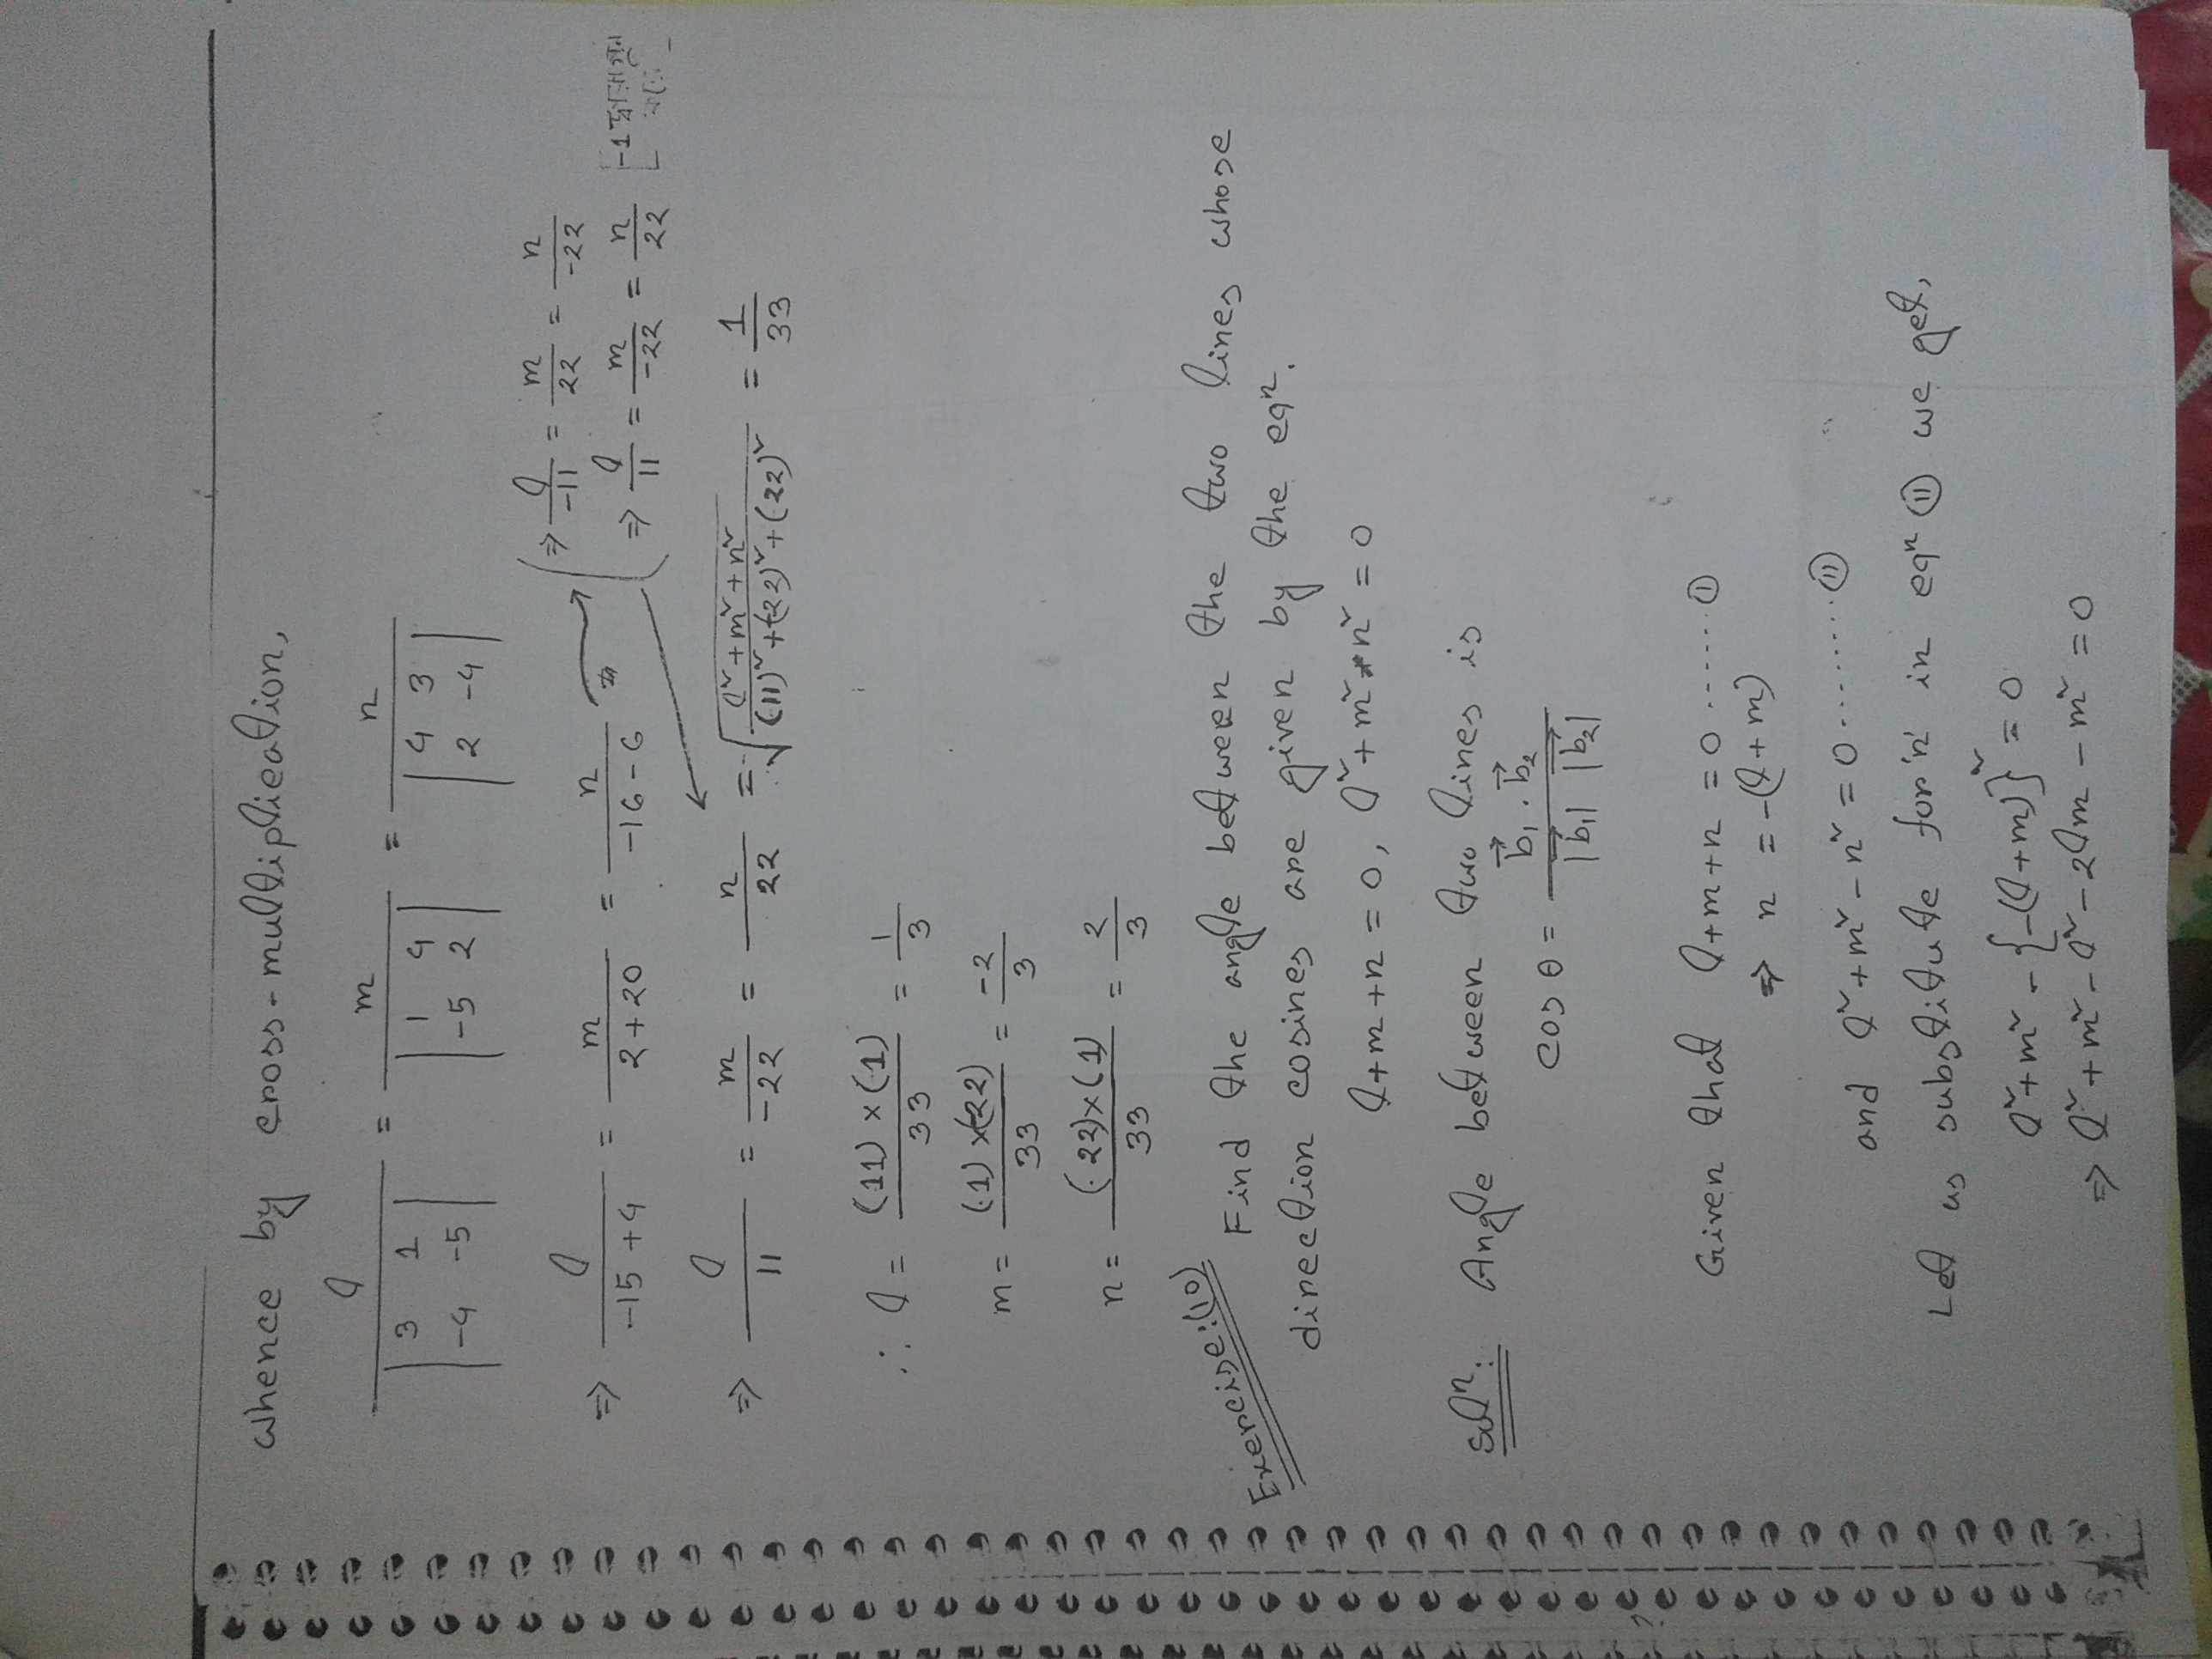 Whence by cross-multiplication,
l / |3 1; -4 -5| = m / |1 4; -5 2| = n / |4 3; 2 -4|
⇒ l/(-15+4) = m/(2+20) = n/(-16-6)
⇒ l/-11 = m/22 = n/-22
⇒ l/11 = m/-22 = n/22 [-1 দ্বারা গুন করে]
⇒ l/11 = m/-22 = n/22 = √((l²+m²+n²)/((11)²+(-22)²+(22)²)) = 1/33
∴ l = (11)×(1)/33 = 1/3
m = (1)×(-22)/33 = -2/3
n = (22)×(1)/33 = 2/3
Exercise:(10) Find the angle between the two lines whose
direction cosines are given by the eqⁿ.
l+m+n = 0, l²+m²-n² = 0
Solⁿ: Angle between two lines is
cos θ = b⃗₁ . b⃗₂ / |b⃗₁| |b⃗₂|
Given that l+m+n = 0 ...... (I)
⇒ n = -(l+m)
and l²+m²-n² = 0 ........ (II)
Let us substitute for 'n' in eqⁿ (II) we get,
l²+m² - {-(l+m)}² = 0
⇒ l²+m²-l²-2lm-m² = 0